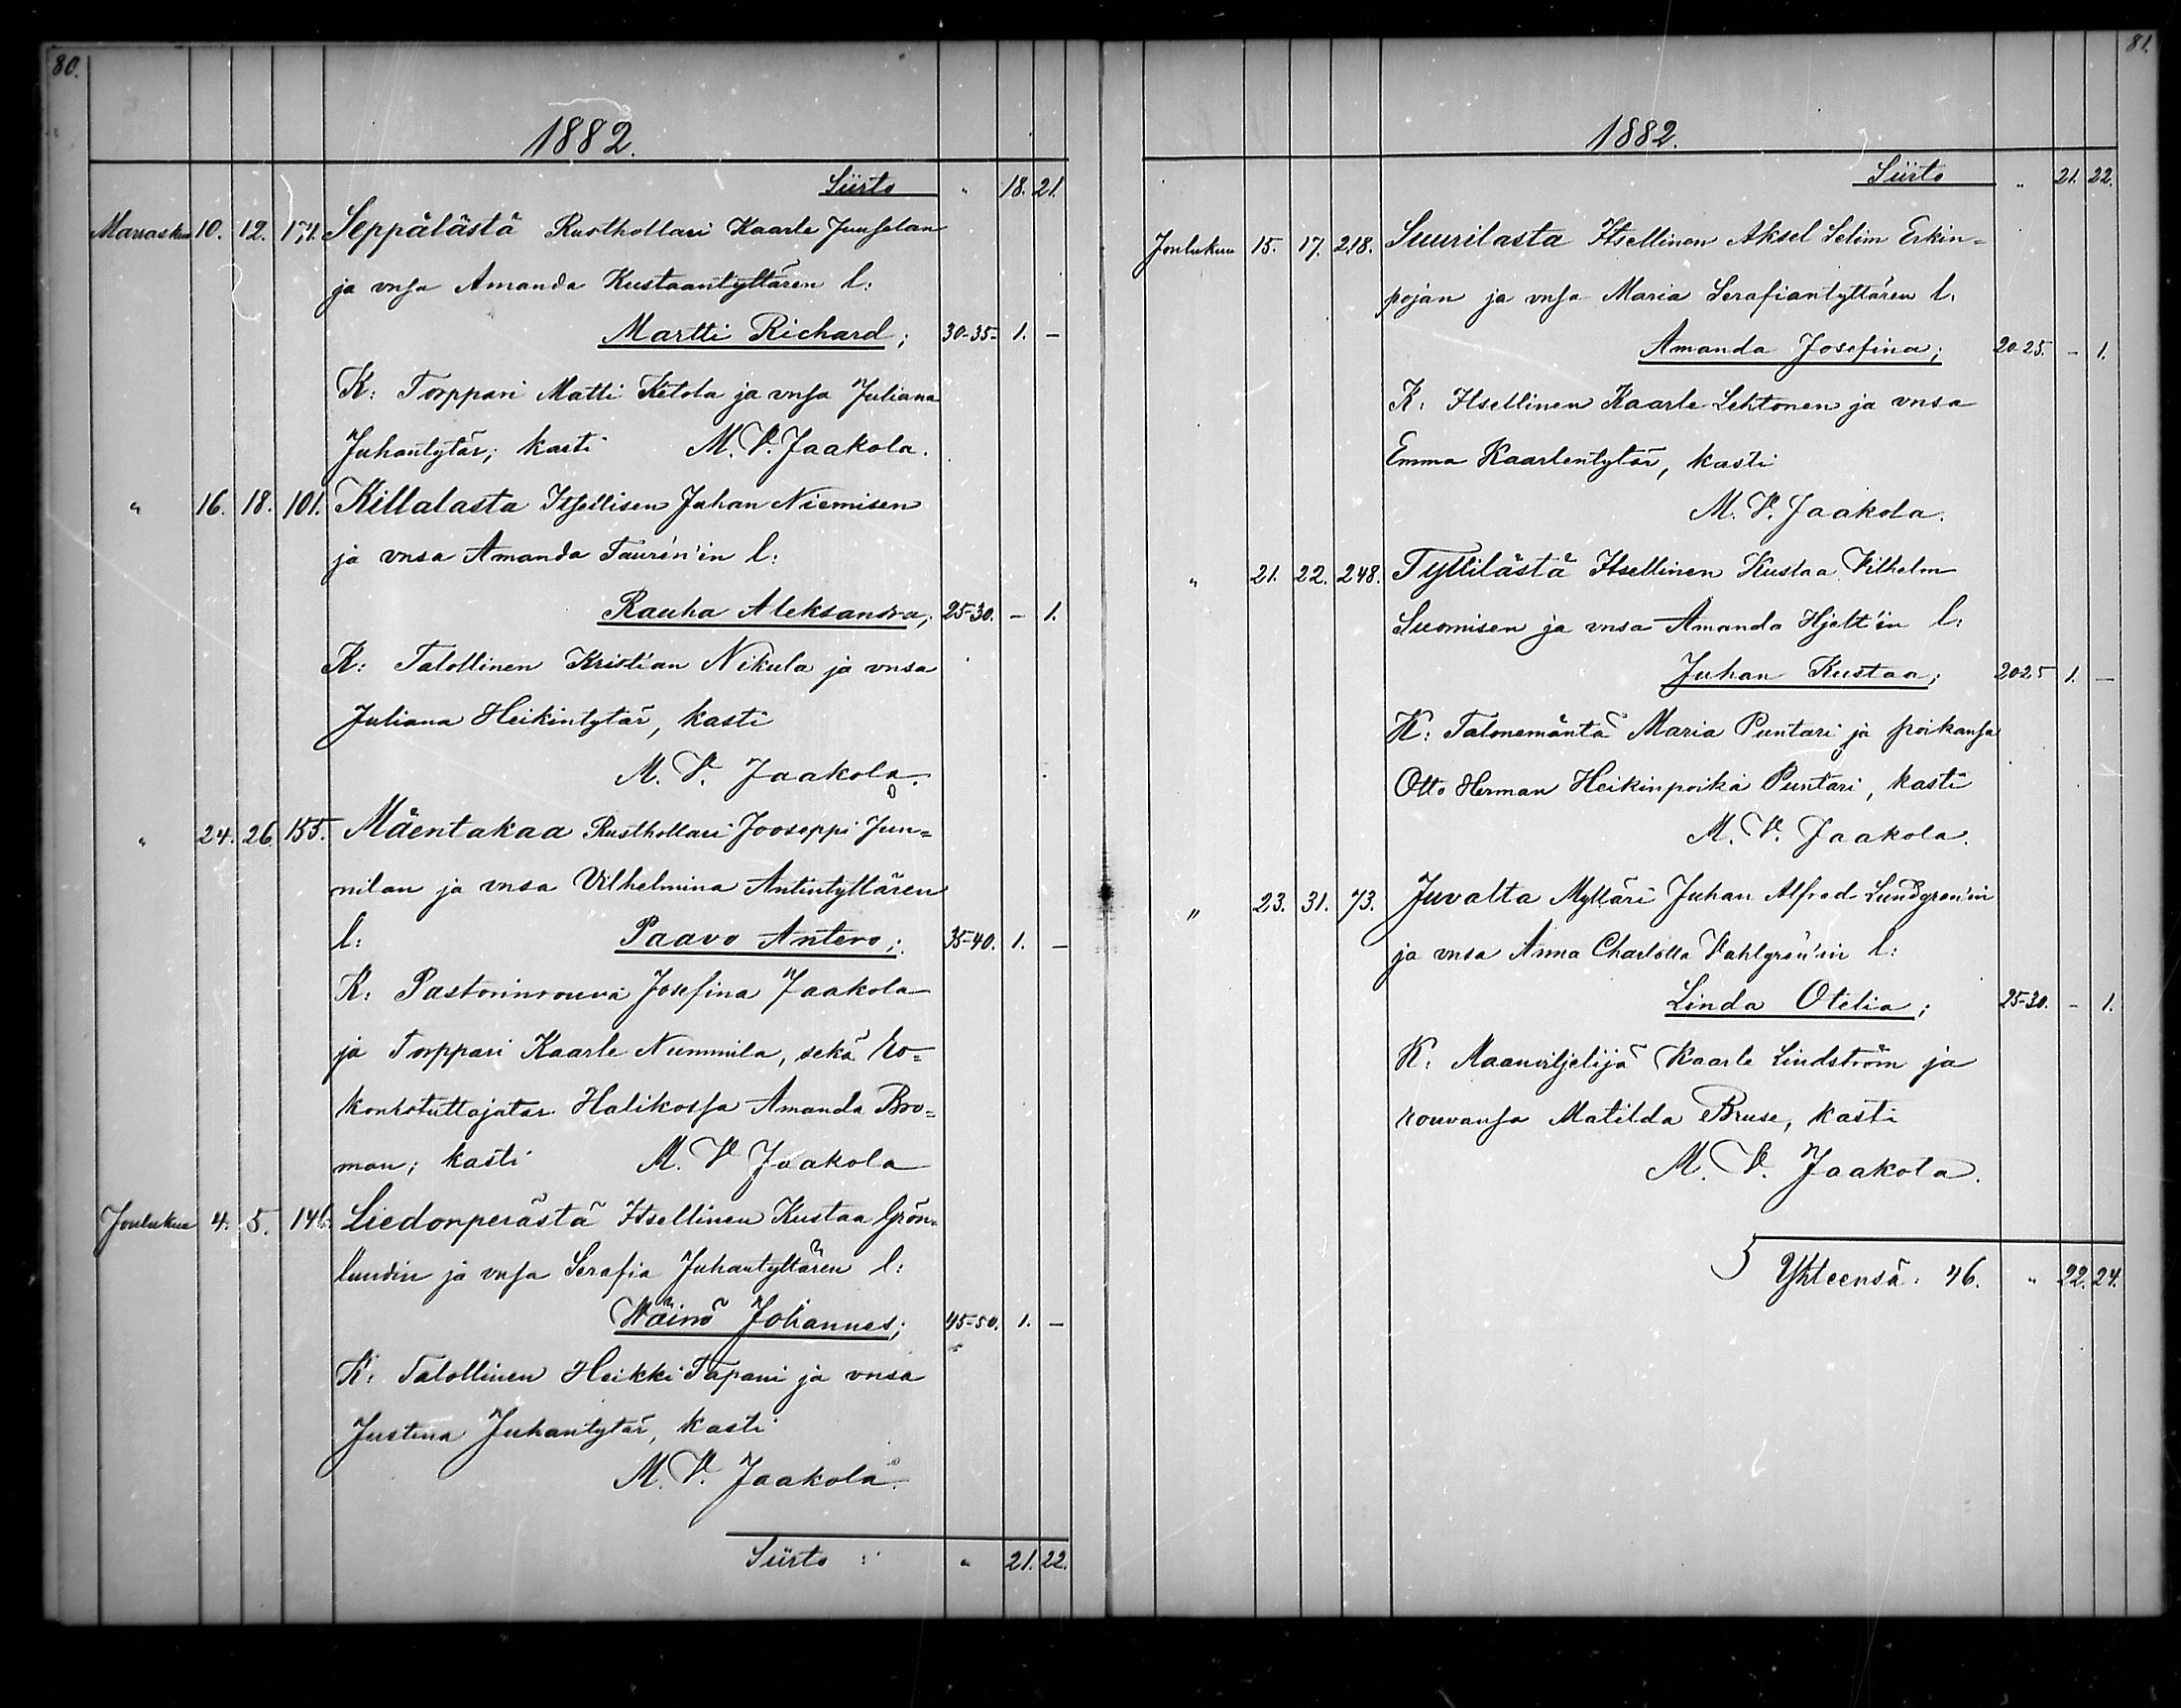 80.
1882.
Siirto " 18. 21.
Marraskuu 10. 12. 171. Seppälästä Rusthollari Kaarle Junselan
ja vnsa Amanda Kustaantyttären l:
Martti Richard; 30-35- 1. –
K: Torppari Matti Ketola ja vnsa Juliana
Juhantytär; kasti M. V. Jaakola.
" 16. 18. 101. Killalasta Itsellisen Juhan Niemisen
ja vnsa Amanda Taurén'in l:
Rauha Aleksandra; 25-30. – 1.
K: Talollinen Kristian Nikula ja vnsa
Juliana Heikintytär, kasti
M. V. Jaakola.
" 24. 26. 155. Mäentakaa Rusthollari Jooseppi Jun=
nilan ja vnsa Vilhelmina Antintyttären
l: Paavo Antero; 35-40. 1. –
K: Pastorinrouva Josefina Jaakola
ja Torppari Kaarle Nummila, sekä ro=
konhotuttajatar Halikossa Amanda Bro=
man; kasti M. V. Jaakola
Joulukuu 4. 5. 146. Liedonperästä Itsellinen Kustaa Grön=
lundin ja vnsa Serafia Juhantyttären l:
Wäinö Johannes; 45-50. 1. –
K: Talollinen Heikki Tapani ja vnsa
Justina Juhantytär, kasti
M. V. Jaakola.
Siirto : " 21. 22.
81.
1882.
Siirto " 21. 22.
Joulukuu 15. 17. 218. Suurilasta Itsellinen Aksel Selim Erkin=
pojan ja vnsa Maria Serafiantyttären l:
Amanda Josefina; 20-25. – 1.
K: Itsellinen Kaarle Lehtonen ja vnsa
Emma Kaarlentytär, kasti
M. V. Jaakola.
" 21. 22. 248. Tyllilästä Itsellinen Kustaa Vilhelm
Suomisen ja vnsa Amanda Hjelt'in l:
Juhan Kustaa; 20-25 1. –
K: Talonemäntä Maria Puntari ja poikansa
Otto Herman Heikinpoika Puntari, kasti
M. V. Jaakola.
" 23. 31. 73. Juvalta Mylläri Juhan Alfred Lundgren'in
ja vnsa Anna Charlotta Vahlgrén'in l:
Linda Otelia; 25-30. – 1.
K: Maanviljelijä Kaarle Lindström ja
rouvansa Matilda Bruse, kasti
M. V. Jaakola.
Yhteensä: 46. " 22. 24.